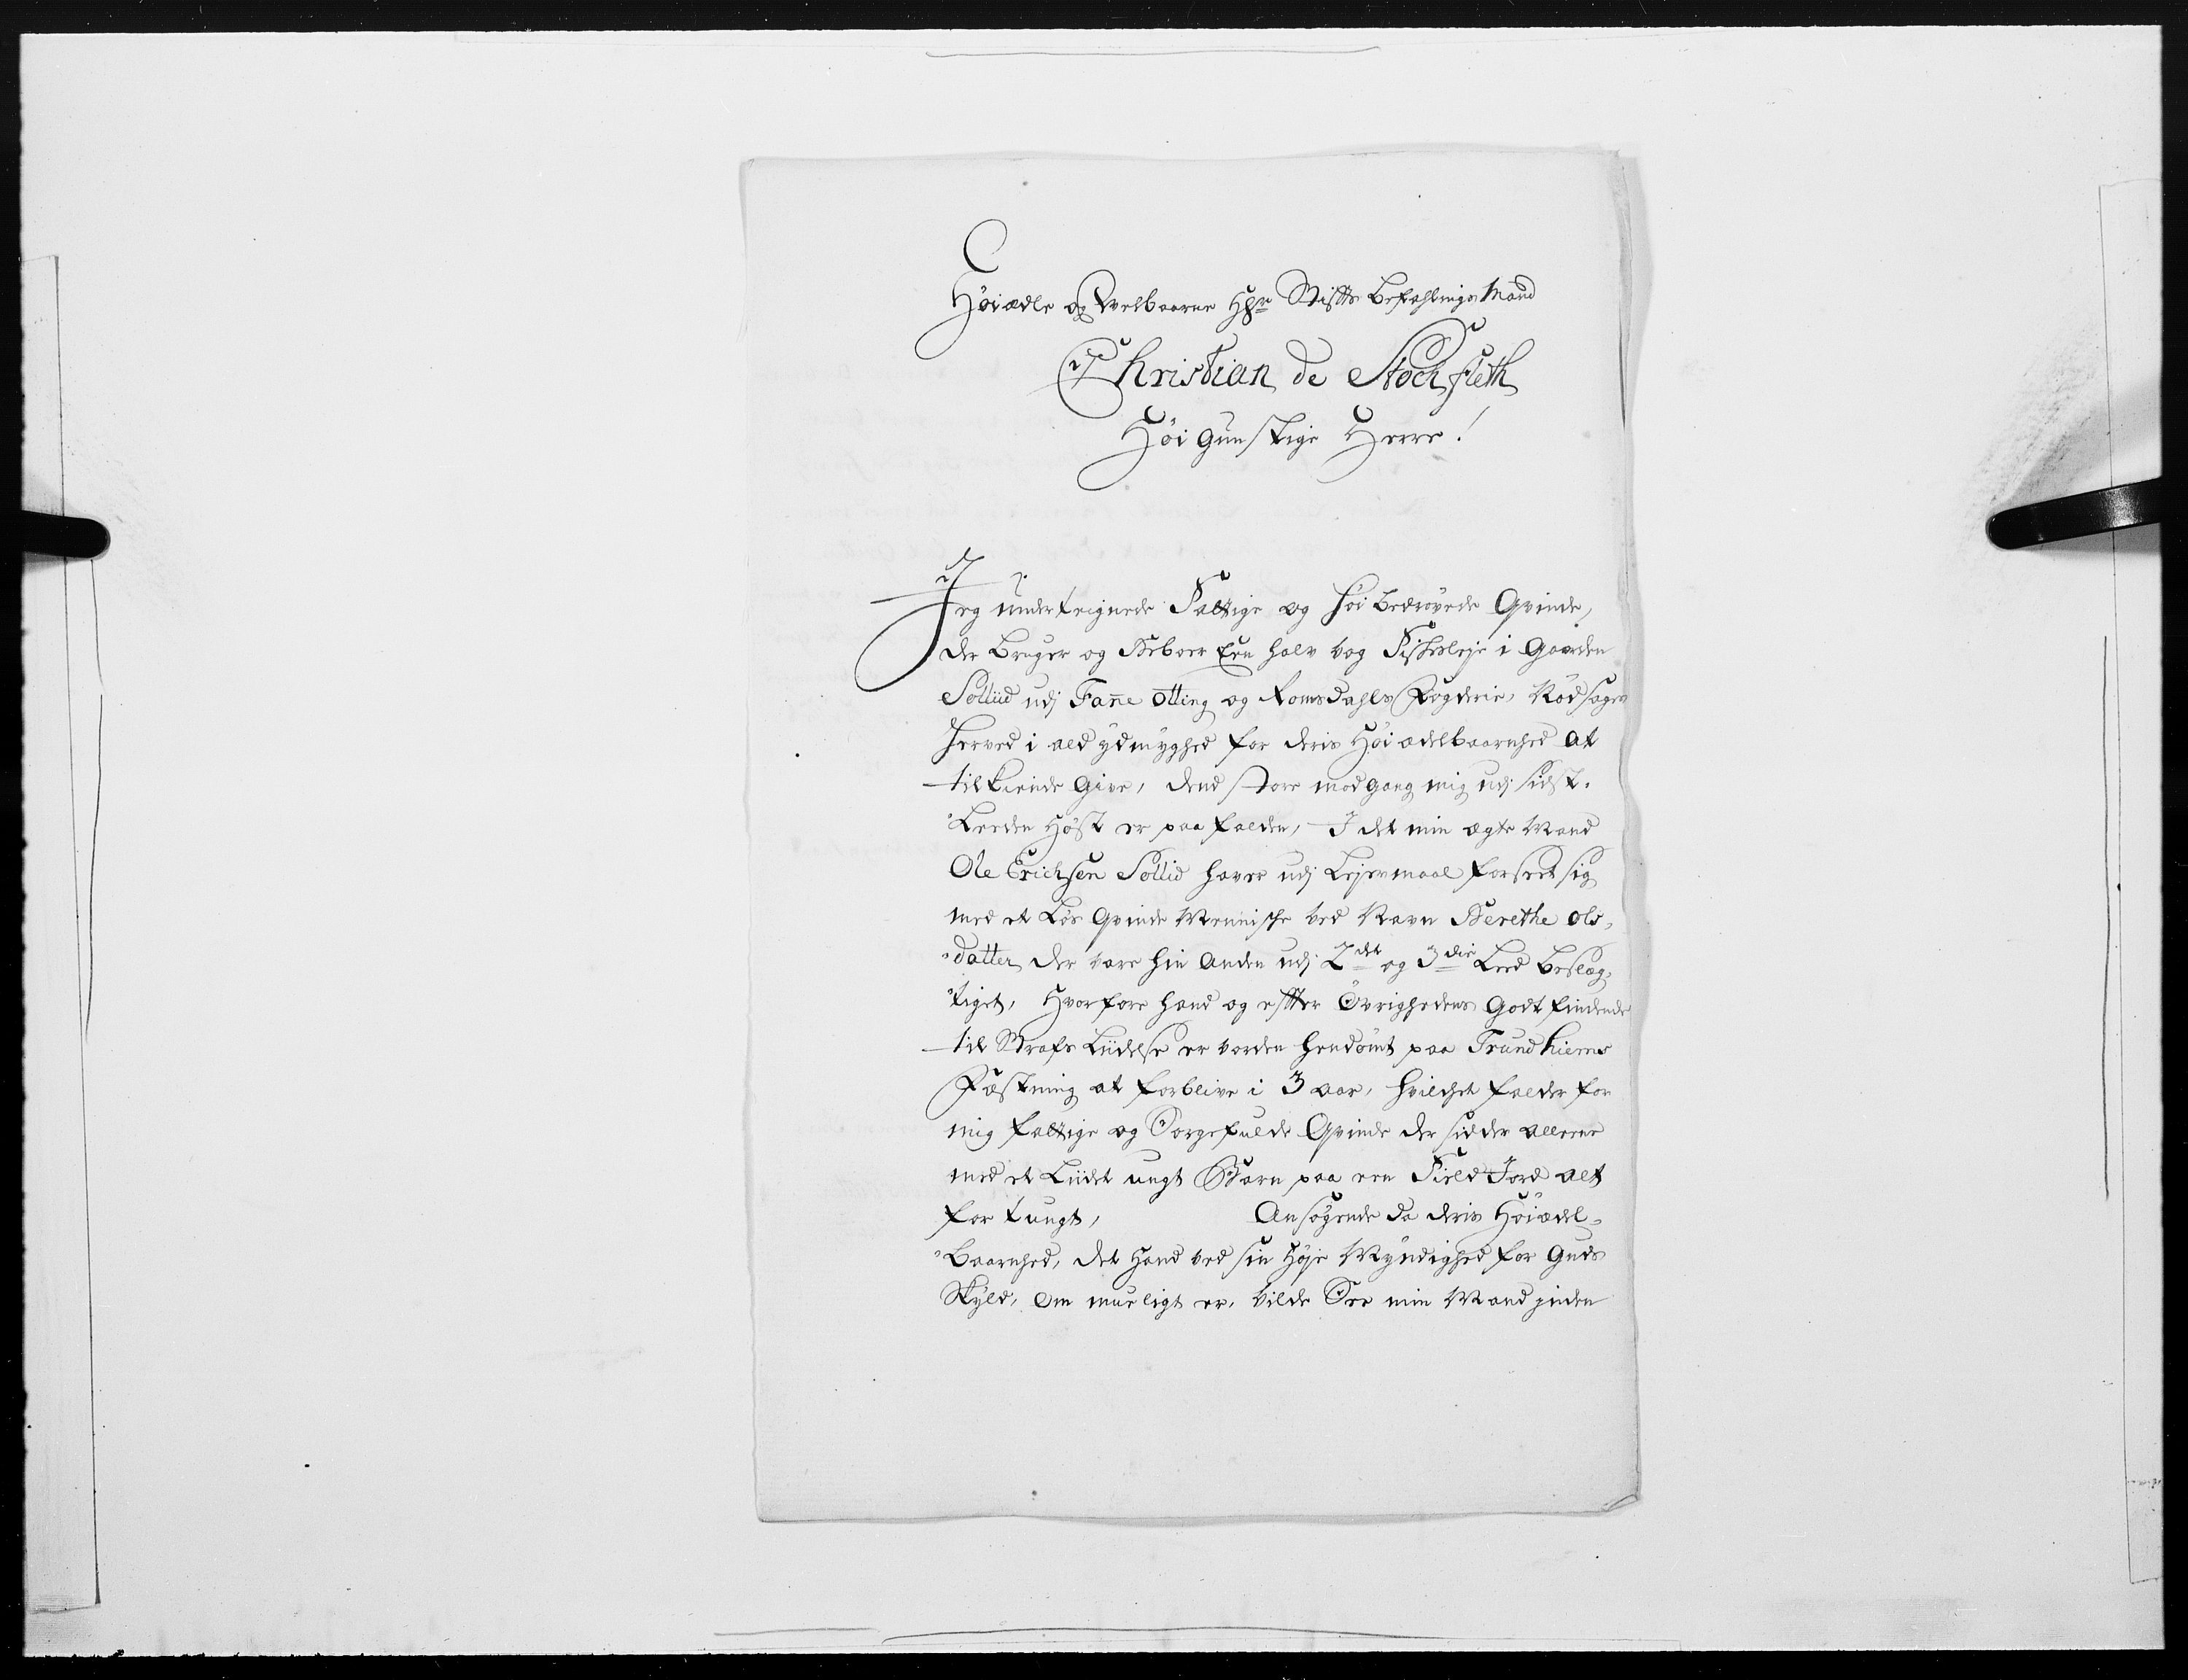 Høiædle og Welbaarne Hr Stifts Befahlings Mand
Christian de Stochfleth
Høigunstige Herre!
Jeg underteignede Fattige og høi bedrøvede Qvinde,
der bruger og Beboer Een halv vog Fiskesleje i Gaarden
Sølliid udj Fañe Otting og Romsdahls Fogderie, Nødsages
herved i ald ydmyghed for deris Høiædelbaarnhed at
tilkiende give, dend store modgang mig udj sidst-
leeden Høst er paafalden, I det min ægte Mand
Ole Erichsen Søllid haver udj Lejermaal forseet sig
med et Løs Qvinde Menniske ved Navn Berethe Ols-
datter, der vare hin anden udj 2det og 3die Leed beslæg-
tiget, hvorfore hand og efter Øvrighedens Godtfindende
til Strafs Liidelse er vorden hendømt paa Trundhiems
Fæstning at forblive i 3 aar, hvilchet falder for
mig fattige og Sorgefulde Qvinde der sidder alleene
med et Liidet ungt Barn paa een Field Jord alt
for tungt, Ansøgende da deris Høiædel-
Baarnhed, det Hand ved sin Høje Myndighed for Guds
Skyld, om mueligt er, vilde See min Mand inden